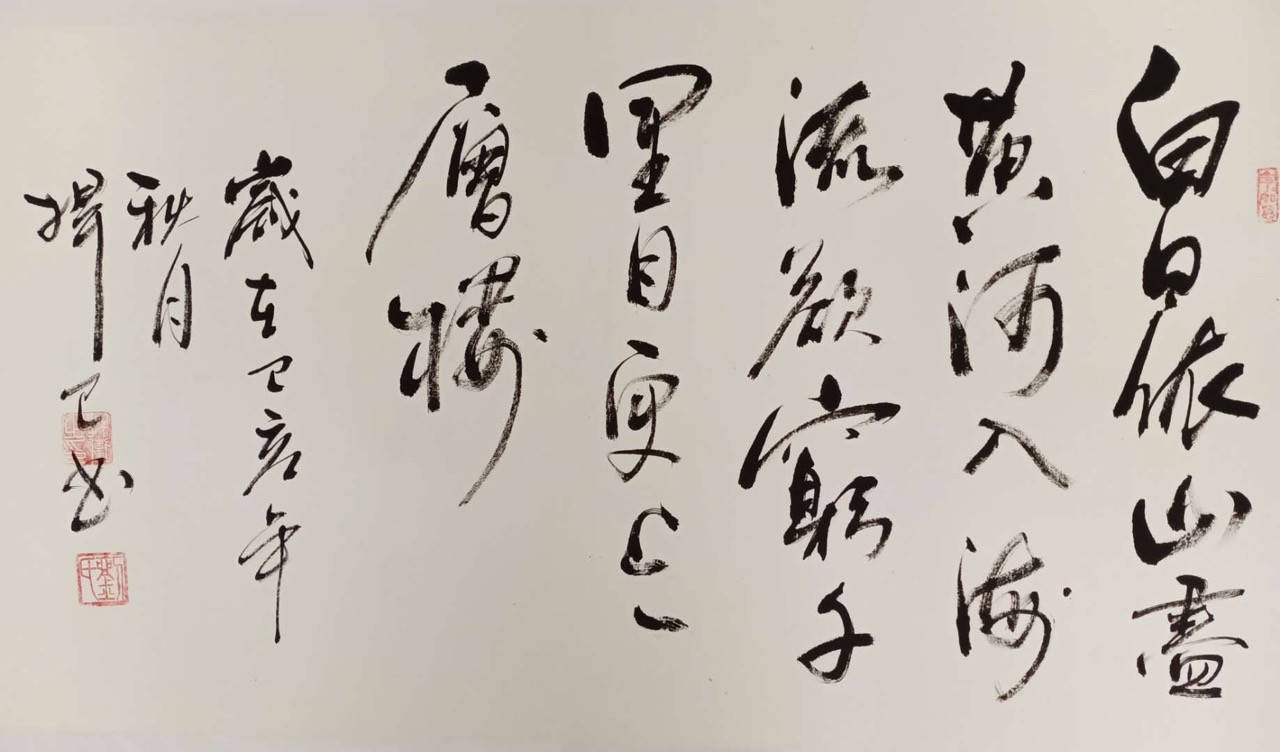 白日依山盡
黃河入海
流欲窮千
里目更上一
層樓
歲在己亥年
秋月
書